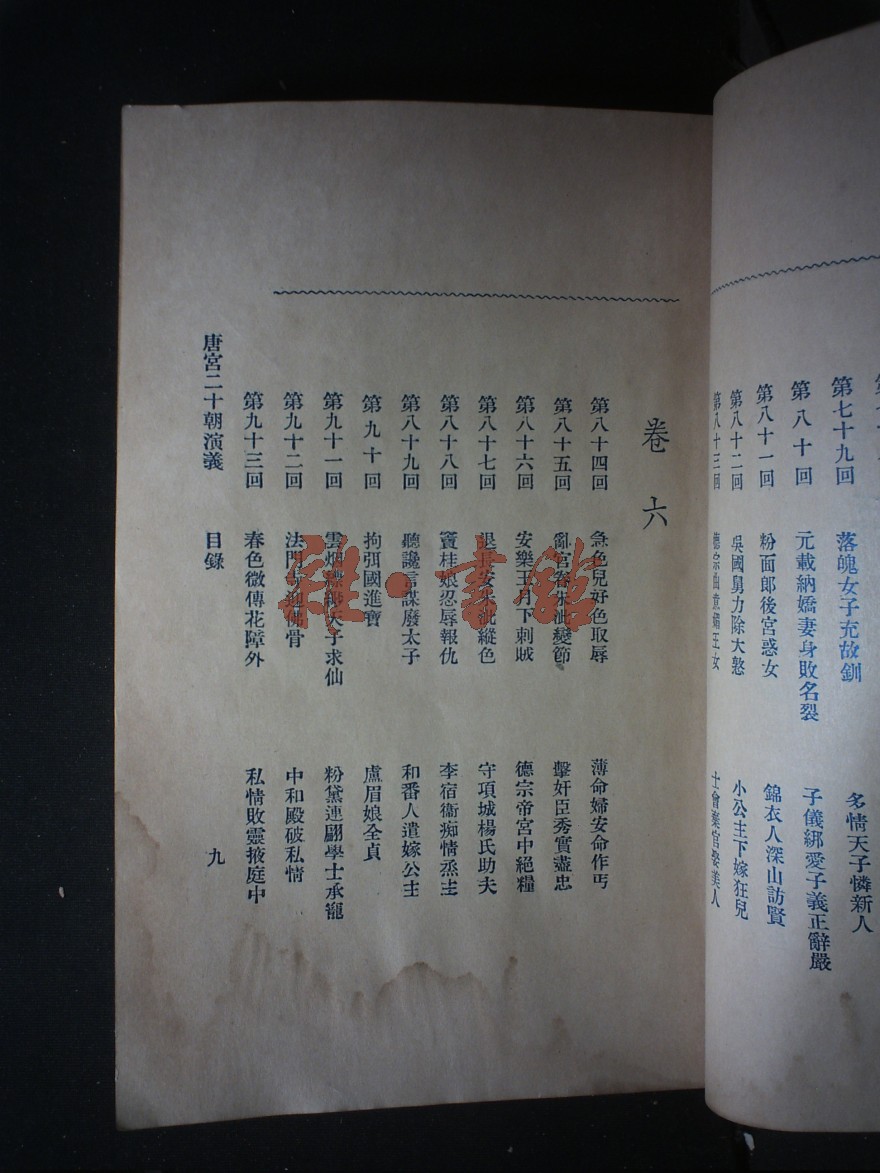 第七十九回 落魄女子充故釧 多情天子憐新人
第八十回 元載納嬌妻身敗名裂 子儀綁愛子義正辭嚴
第八十一回 粉面郎後宮惑女 錦衣人深山訪賢
第八十二回 吳國舅力除大憝 小公主下嫁狂兒
第八十三回 德宗曲意媚王女 士會棄官娶美人
卷六
第八十四回 急色兒好色取辱 薄命婦安命作丐
第八十五回 亂宮眷朱泚變節 擊奸臣秀實盡忠
第八十六回 安樂王月下刺賊 德宗帝宮中絕糧
第八十七回 退長安朱泚縱色 守項城楊氏助夫
第八十八回 竇桂娘忍辱報仇 李宿衞痴情烝主
第八十九回 聽讒言謀廢太子 和番人遣嫁公主
第九十回 拘弭國進寶 盧眉娘全貞
第九十一回 雲烟縹緲天子求仙 粉黛連翩學士承寵
第九十二回 法門寺迎佛骨 中和殿破私情
第九十三回 春色微傳花障外 私情敗靈掖庭中
唐宮二十朝演義 目錄 九
雜·書館